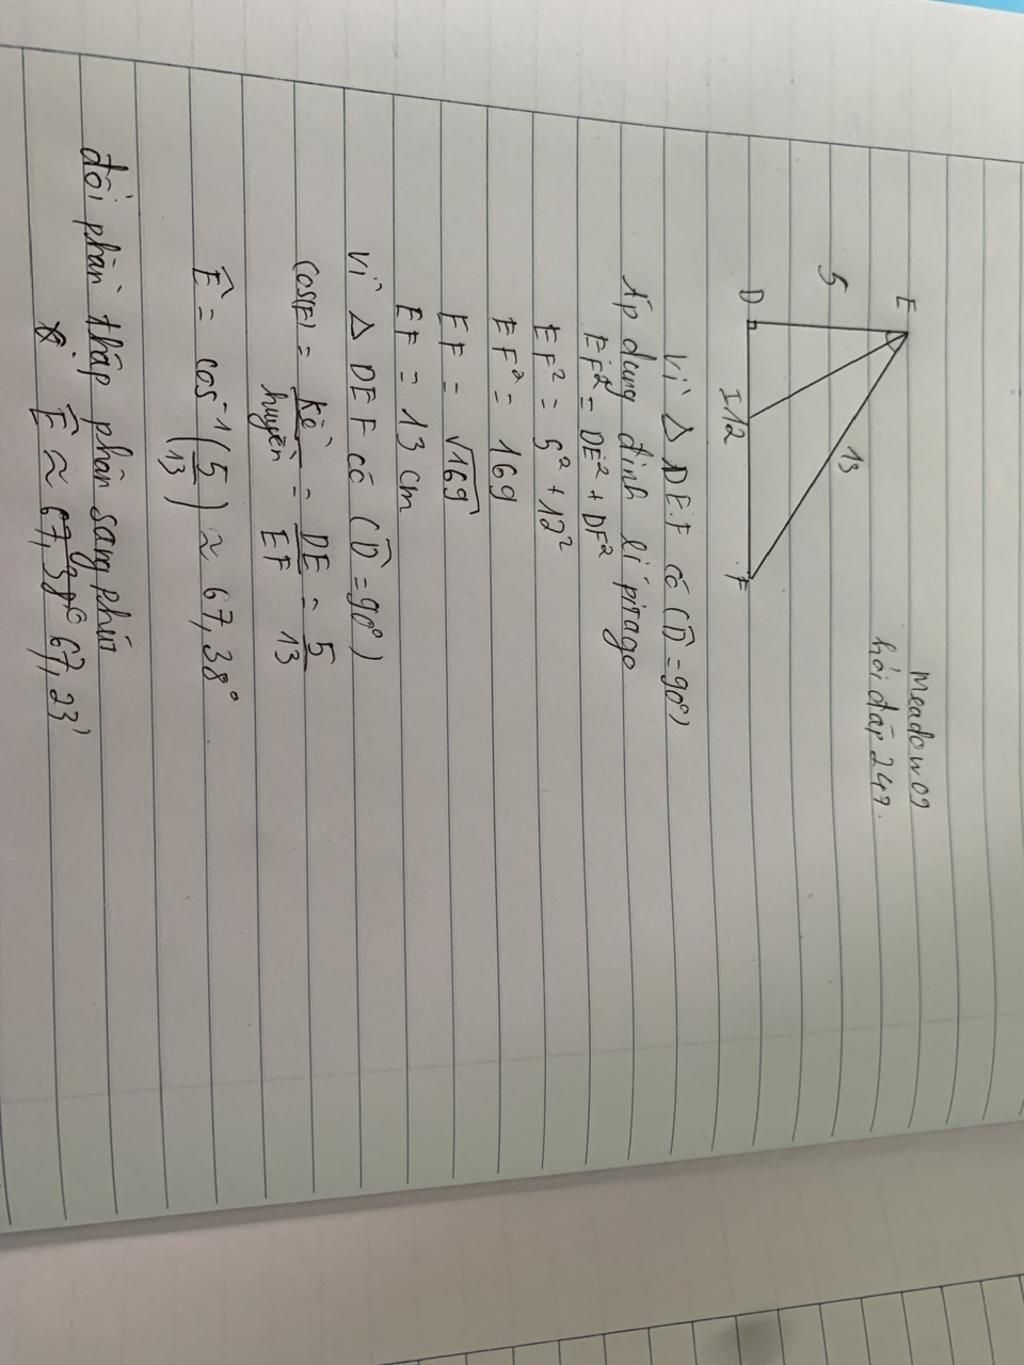 Meadow09
hỏi đáp 247.
E
5
13
D
I 12
F
Vì △ DEF có (D̂ = 90°)
Áp dụng định lí pitago
EF² = DE² + DF²
EF² = 5² + 12²
EF² = 169
EF = √169
EF = 13 cm
Vì △ DEF có (D̂ = 90°)
cos(E) = kề/huyền = DE/EF = 5/13
Ê = cos⁻¹(5/13) ≈ 67,38°
đổi phần thập phân sang phút
Ê ≈ 67,23'